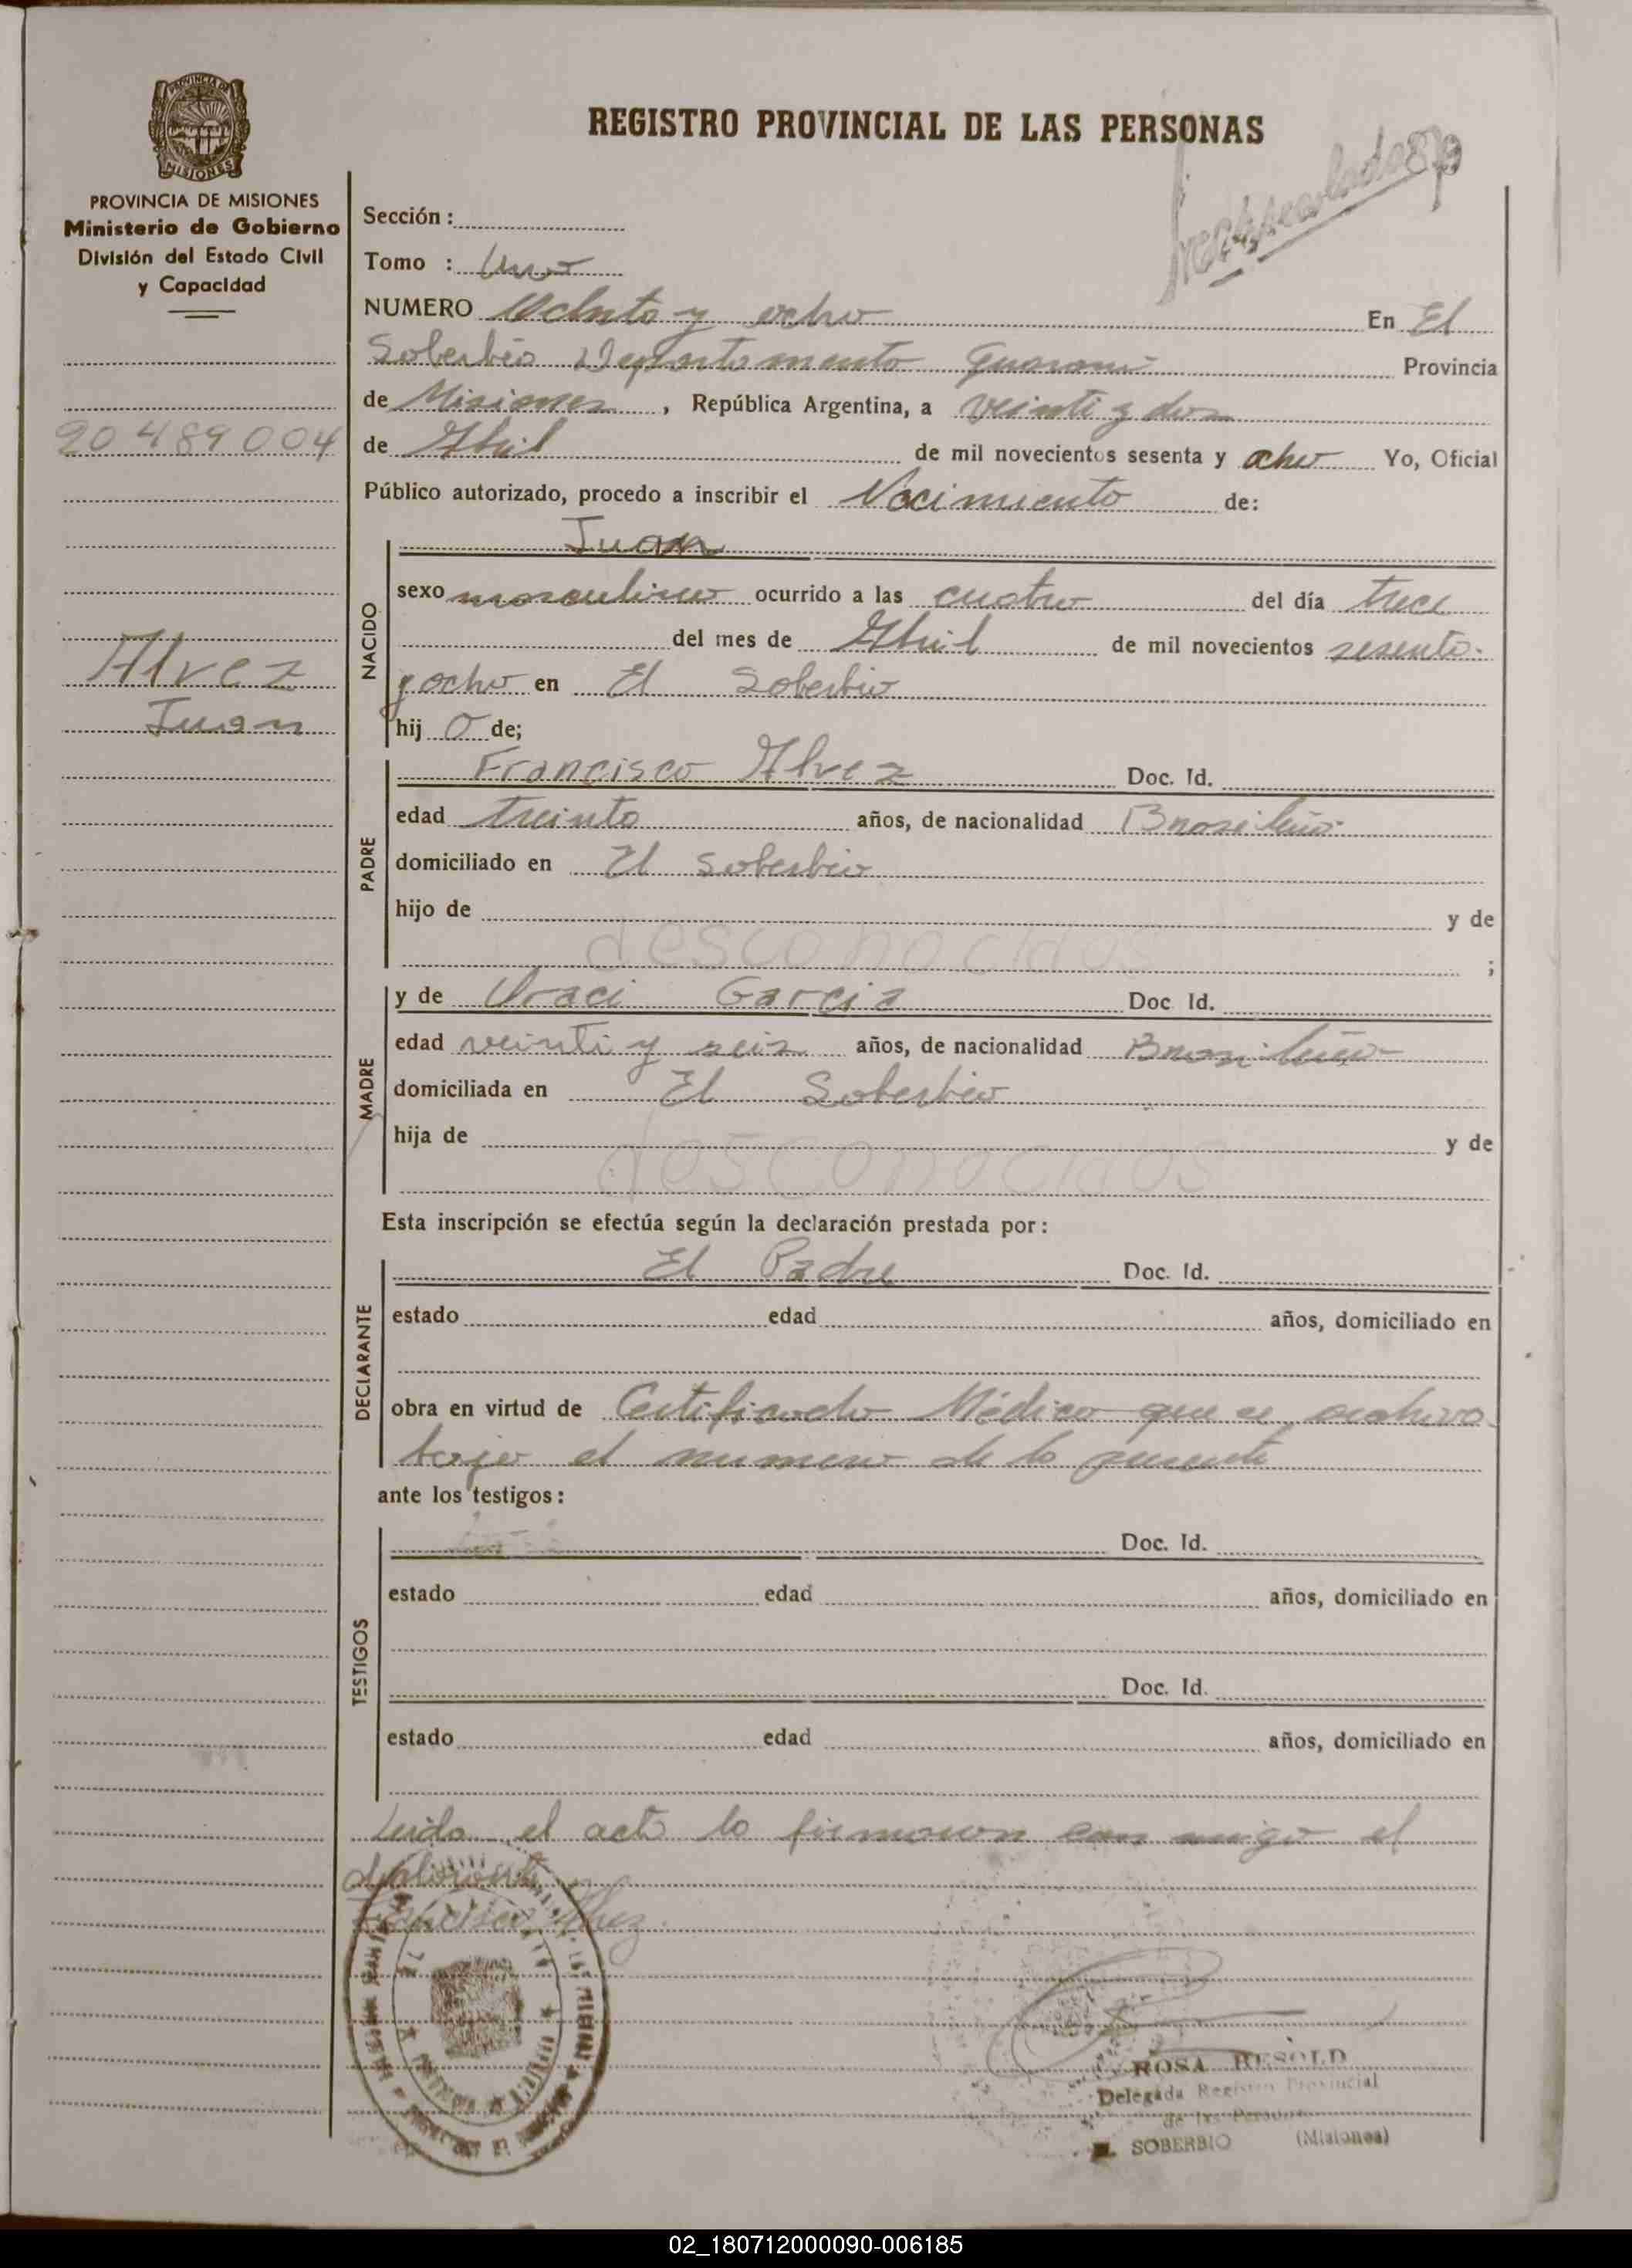 REGISTRO PROVINCIAL DE LAS PERSONAS
PROVINCIA DE
MISIONES
PROVINCIA DE MISIONES
Ministerio de Gobierno
División del Estado Civil
y Capacidad
20489004
Alvez
Juan
Sección :
Tomo : Uno
NUMERO Ochenta y ocho En El
Soberbio Departamento Guarani Provincia
de Misiones , República Argentina, a veinti y dos
de Abril de mil novecientos sesenta y ocho Yo, Oficial
Público autorizado, procedo a inscribir el Nacimiento de:
NACIDO
Juan
sexo masculino ocurrido a las cuatro del día trece
del mes de Abril de mil novecientos sesenta
y ocho en El Soberbio
hij o de;
PADRE
Francisco Alvez Doc. Id.
edad treinta años, de nacionalidad Brasileño
domiciliado en El Soberbio
hijo de y de
desconocidos ;
MADRE
y de Garcia Doc Id.
edad veinti y seis años, de nacionalidad Brasileña
domiciliada en El Soberbio
hija de y de
desconocidos
Esta inscripción se efectúa según la declaración prestada por :
DECLARANTE
El Padre Doc. Id.
estado edad años, domiciliado en
obra en virtud de Certificado Médico que se archiva
bajo el numero de la presente
ante los testigos :
TESTIGOS
Doc. Id.
estado edad años, domiciliado en
Doc. Id.
estado edad años, domiciliado en
Leida el acta la firmaron con migo el
declarante
Francisco Alvez.
ROSA RESOLD
Delegada Registro Provincial
de las Personas
EL SOBERBIO (Misiones)
02_180712000090-006185